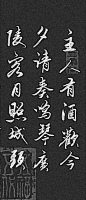 主人有酒歡今
夕請奏鳴琴廣
陵客月照城頭